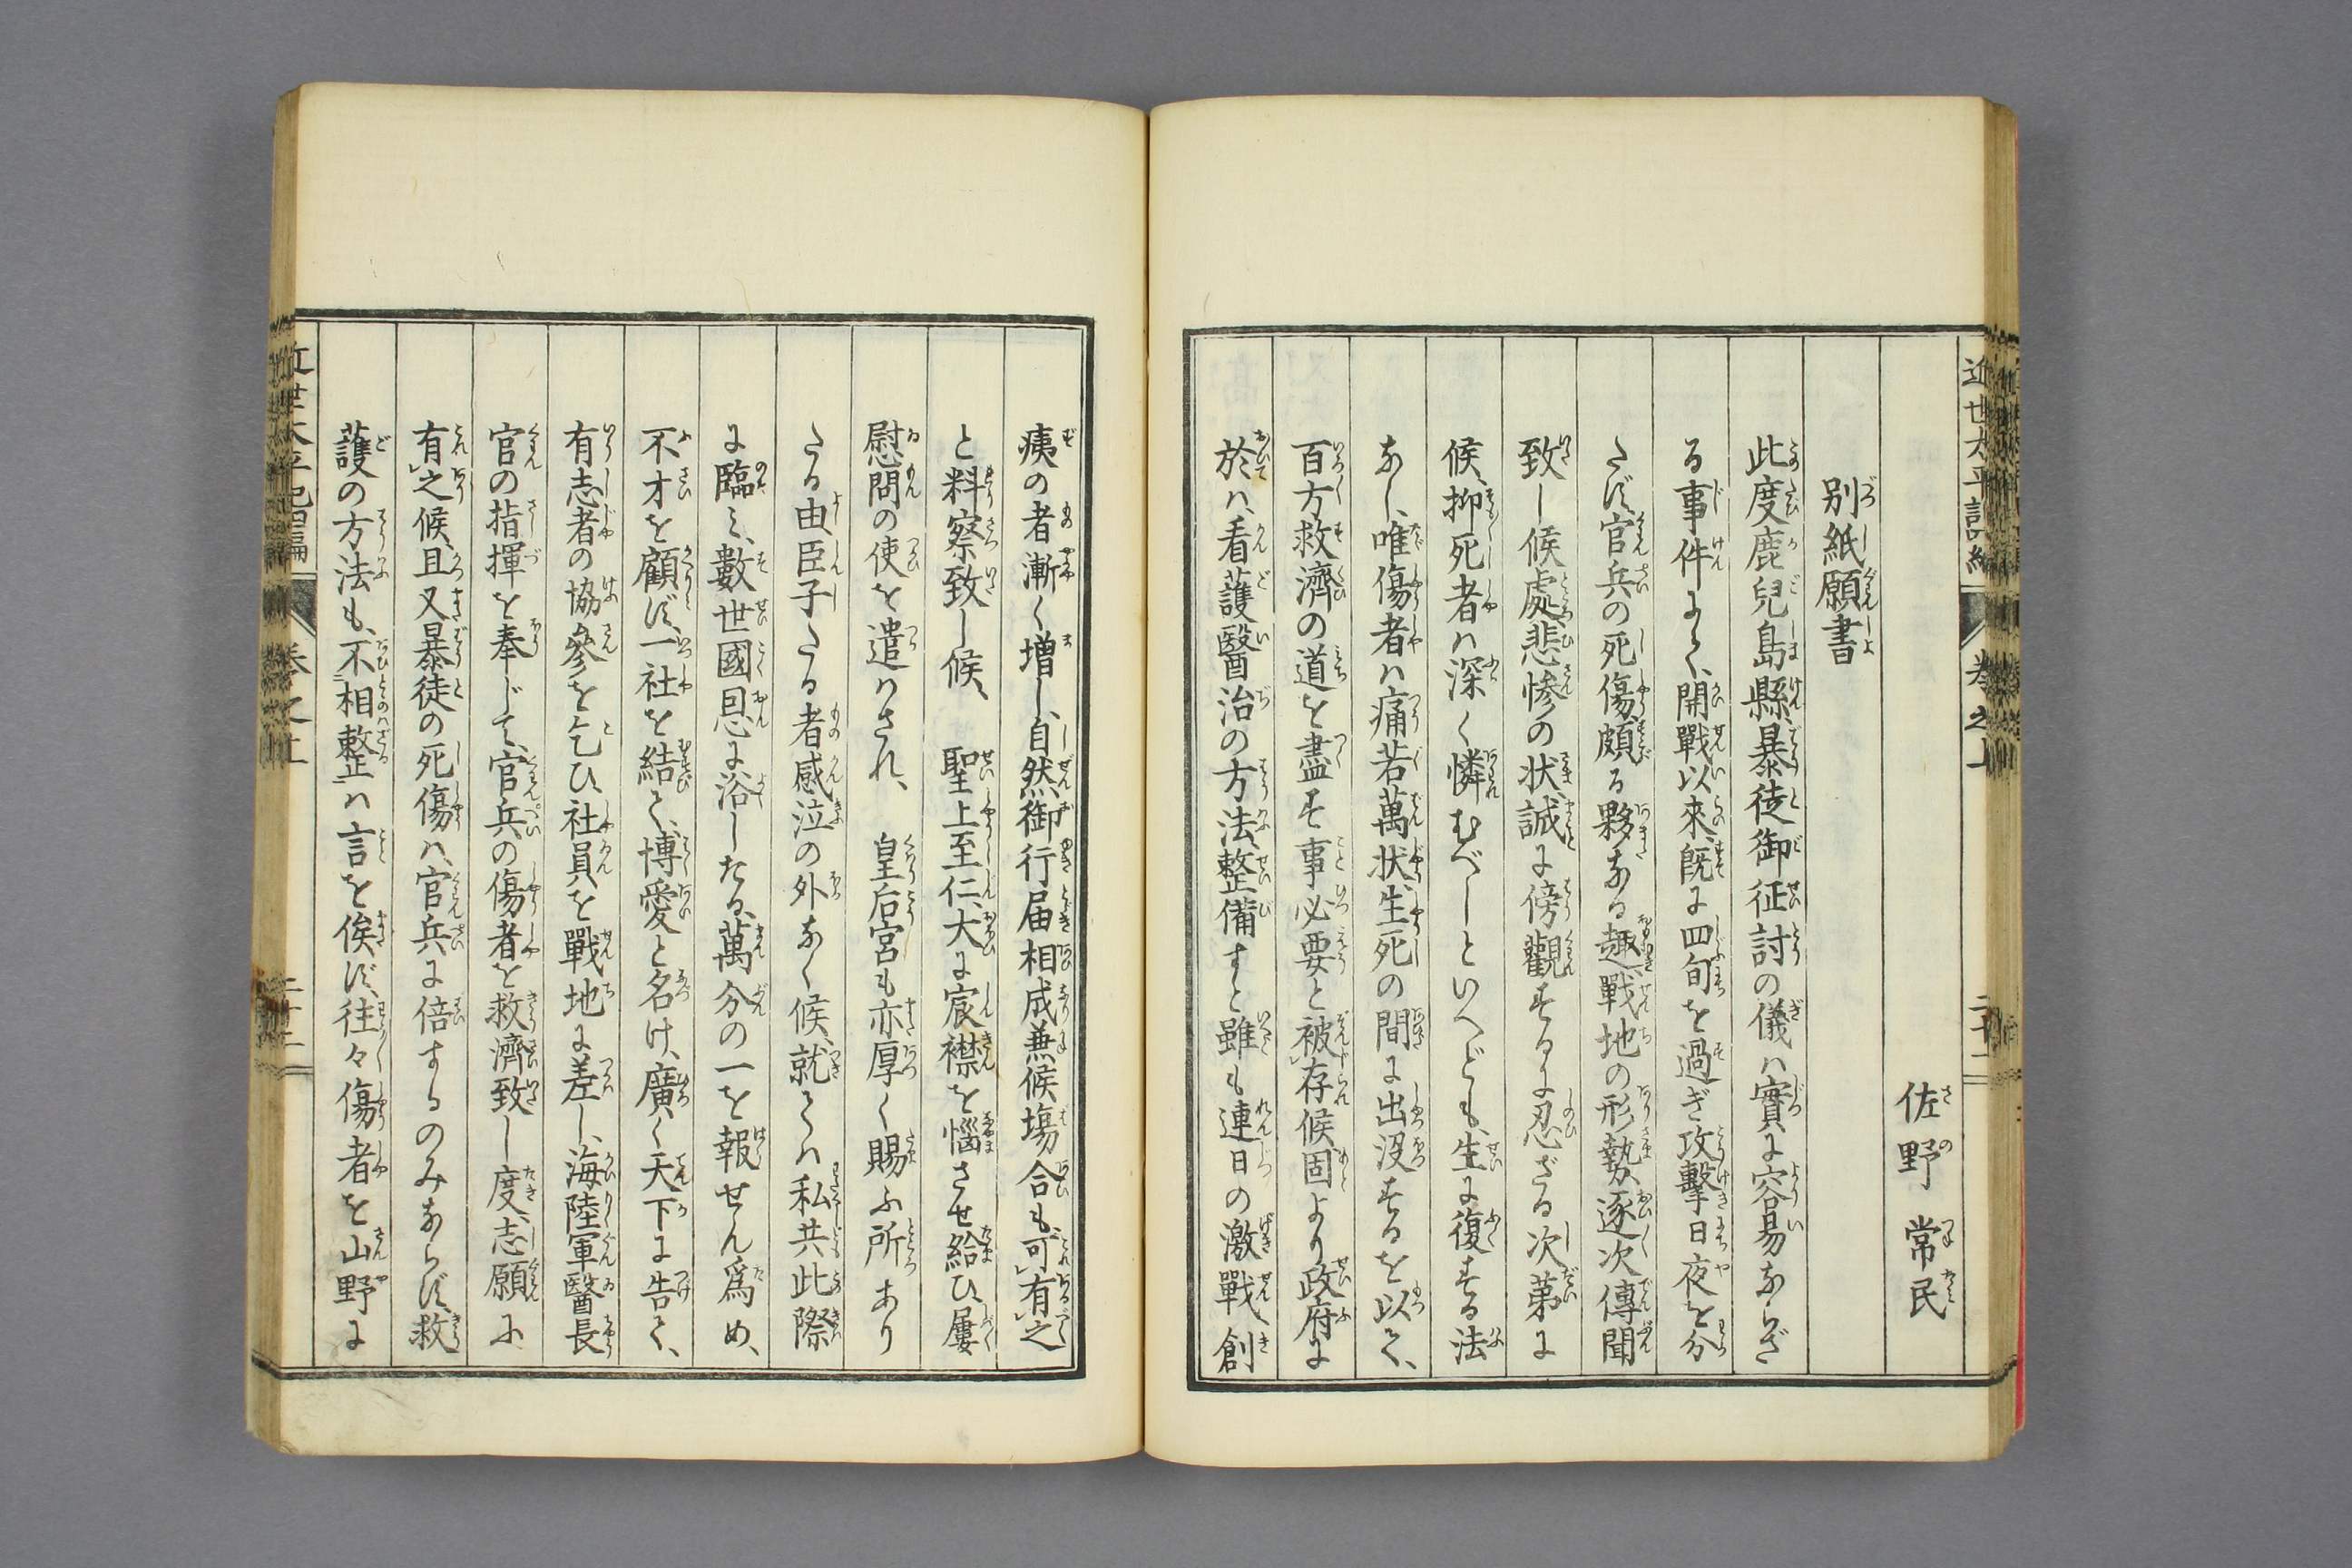 佐野常民
別紙願書
此度鹿兒島縣暴徒御征討の儀ハ實に容易ならざ
る事件にて、開戰以來、既に四旬を過ぎ、攻擊日夜を分
たず、官兵の死傷、頗る夥なる趣、戰地の形勢、逐次傳聞
致し候處、悲惨の状、誠に傍觀するに忍びざる次第に
候、抑死者ハ深く憐むべしといへども、生に復する法
なし、唯傷者ハ痛若萬状、生死の間に出没するを以て、
百方救濟の道を盡す事必要と被存候、固より政府に
於ハ、看護醫治の方法、整備すと雖も連日の激戰、創
痍の者漸く増し、自然、御行届相成兼候塲合も、可有之
と料察致し候、聖上至仁、大に宸襟を惱させ給ひ、屢
慰問の使を遣ハされ、皇后宮も亦厚く賜ふ所あり
たる由、臣子たる者感泣の外なく候、就てハ私共此際
に臨ミ、數世國恩に浴したる、萬分の一を報せん爲め、
不才を顧ず、一社を結て、博愛と名け、廣く天下に告て、
有志者の協參を乞ひ、社員を戰地に差し、海陸軍醫長
官の指揮を奉じて、官兵の傷者を救濟致し度、志願に
有之候、且又暴徒の死傷ハ、官兵に倍するのみならず、救
護の方法も、不相整ハ言を俟ず、往々傷者を山野に